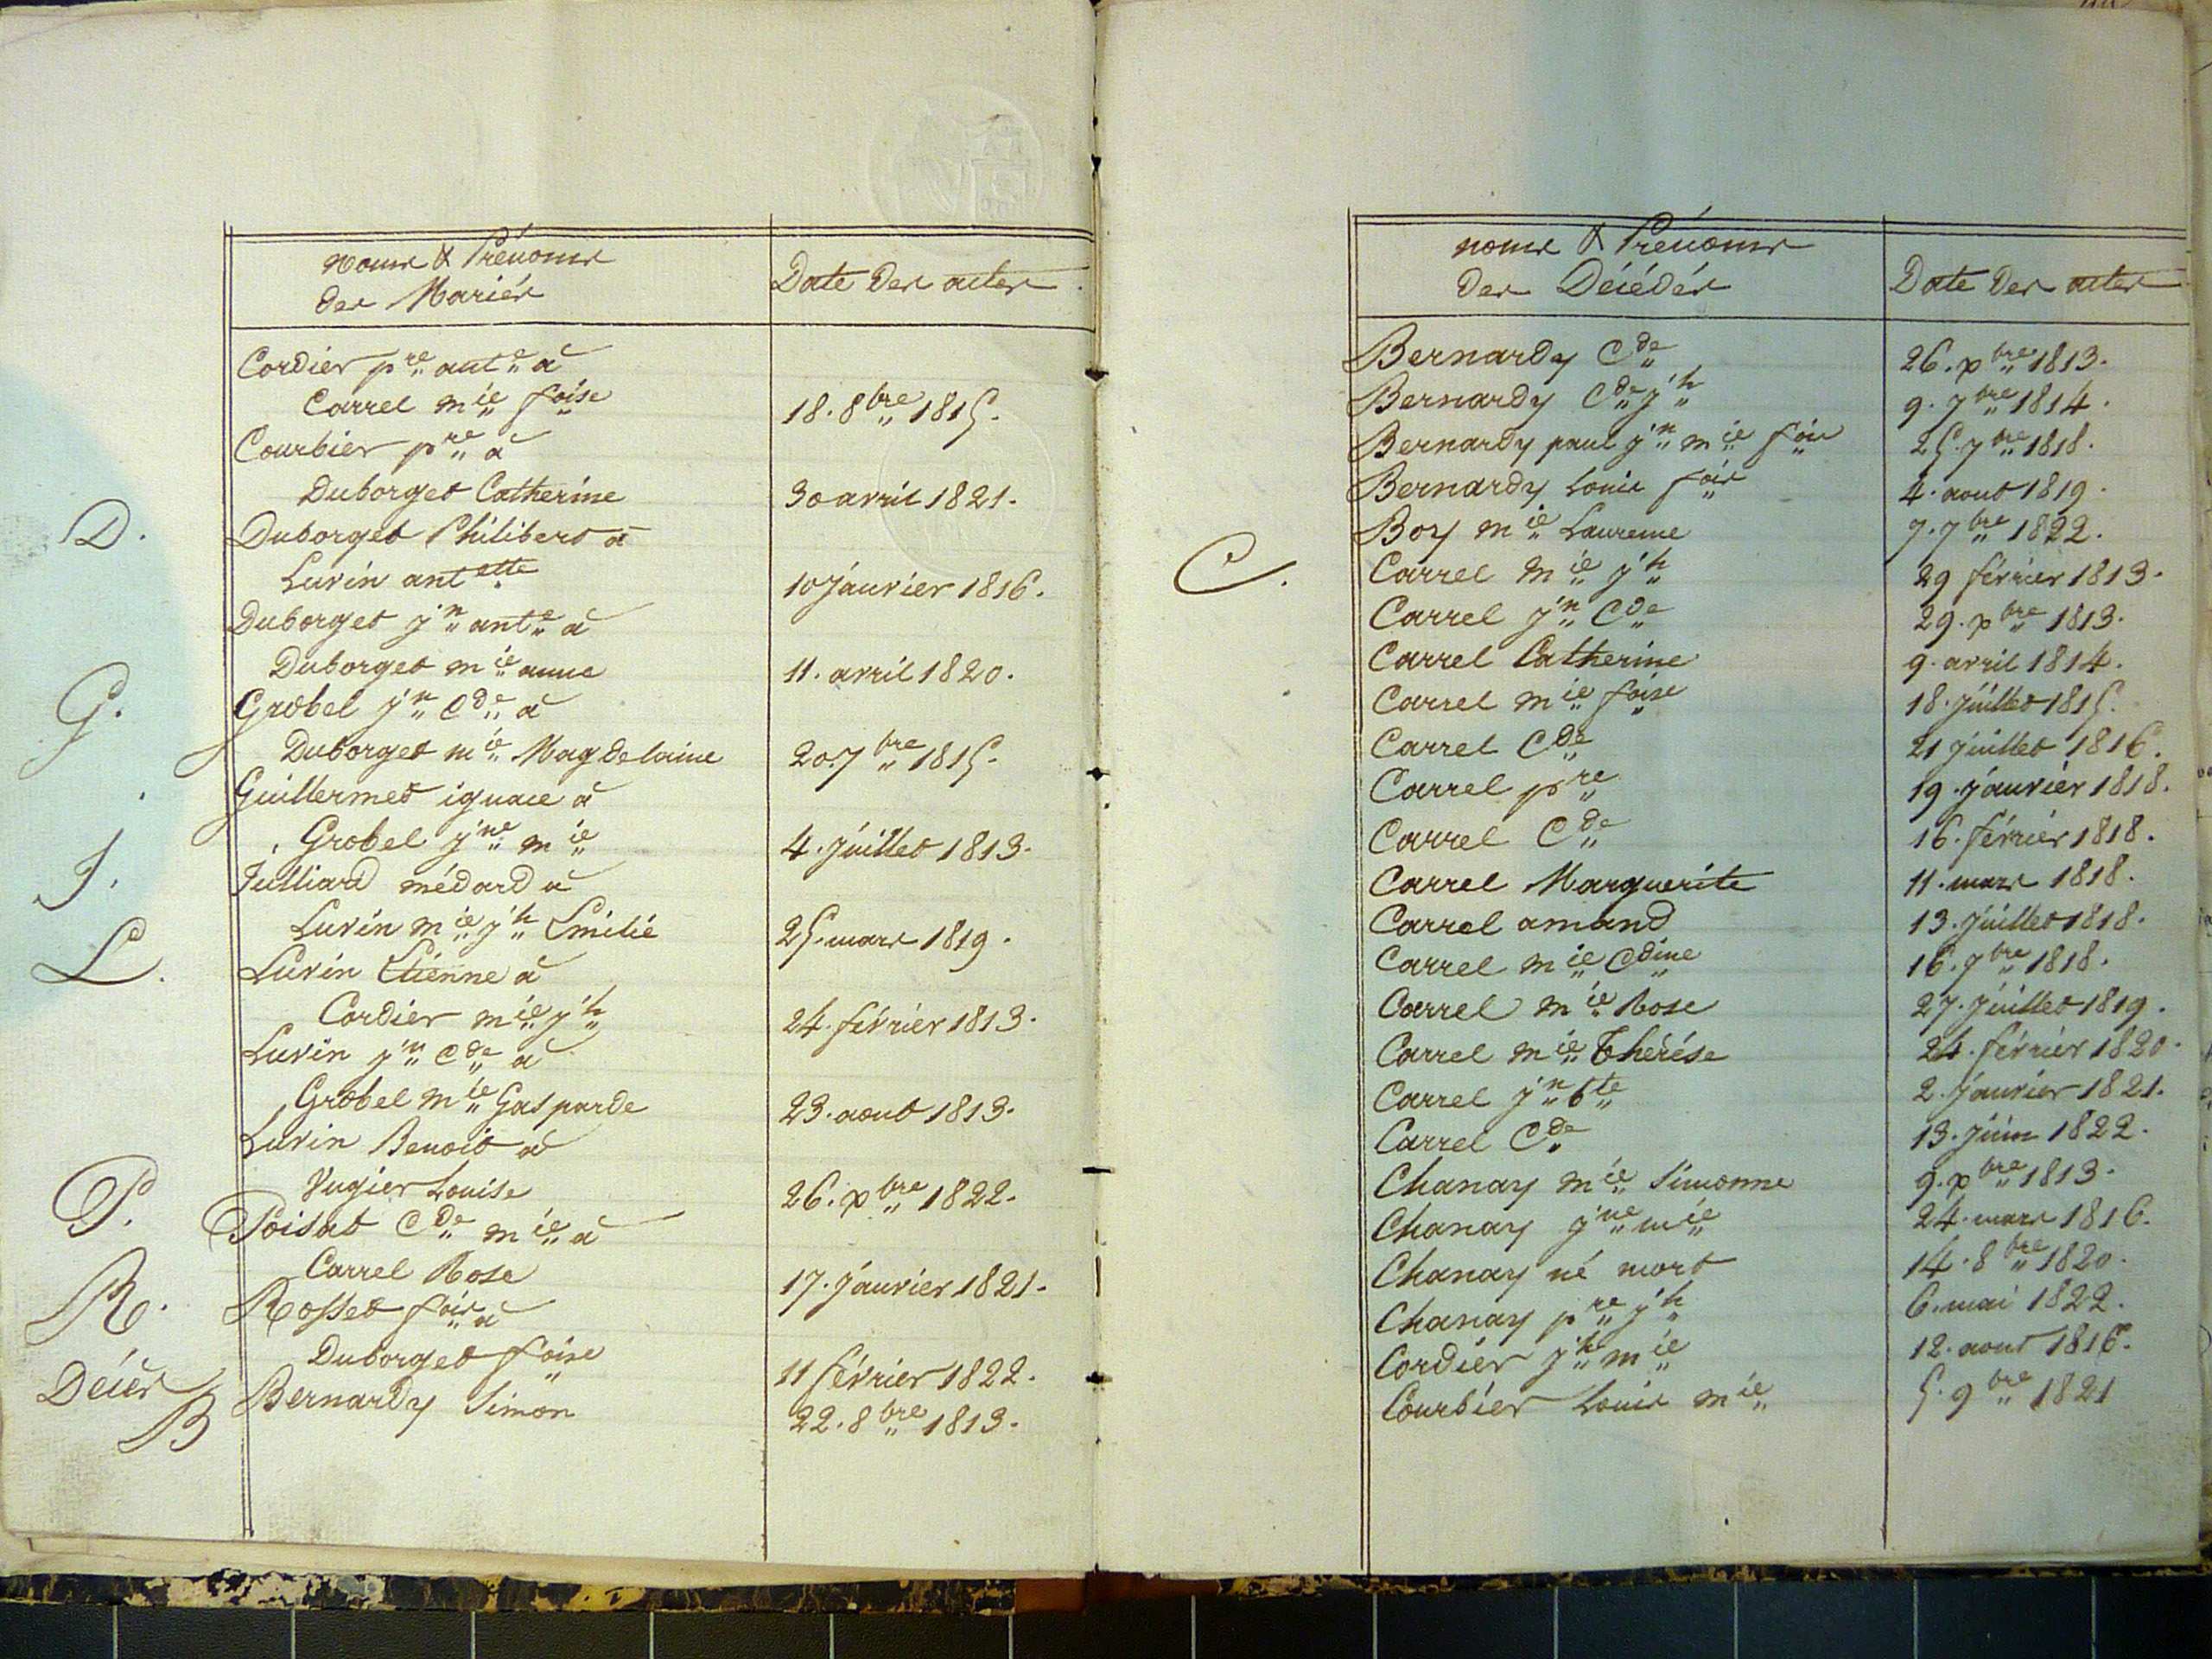 noms & Prénoms
des Mariés
Date des actes
Cordier p.re ant.e à
Carrel m.ie f.oise
18. 8.bre 1815.
Courbier p.re à
Duborget Catherine
30 avril 1821.
D.
Duborget Philibert à
Luvin ant.ette
10 janvier 1816.
Duborget j.n ant.e à
Duborget m.ie anne
11. avril 1820.
G.
Grobel j.n C.de à
Duborget m.ie Magdelaine
20. 7.bre 1815.
Guillermet ignace à
Grobel j.ne m.ie
4. juillet 1813.
J.
Julliard médard à
Luvin m.ie j.h Emilie
25. mars 1819.
L.
Luvin Etienne à
Cordier m.ie j.h
24. février 1813.
Luvin j.n C.de à
Grobel m.ie Gasparde
23. aout 1813.
Luvin Benoit à
Vugier Louise
26. x.bre 1822.
P.
Poisat C.de m.ie à
Carrel Rose
17. janvier 1821.
R.
Rosset f.ois à
Duborget f.oise
11 février 1822.
Décès
B
Bernardy Simon
22. 8.bre 1813.
noms & Prénoms
des Décédés
Date des actes
Bernardy C.de
26. x.bre 1813.
Bernardy C.de j.h
9. 7.bre 1814.
Bernardy paul j.n m.ie f.ois
25. 7.bre 1818.
Bernardy Louis f.ois
4. aout 1819.
Boy m.ie Laurence
7. 7.bre 1822.
C.
Carrel m.ie j.h
29 février 1813.
Carrel j.n C.de
29. x.bre 1813.
Carrel Catherine
9. avril 1814.
Carrel m.ie f.oise
18. juillet 1815.
Carrel C.de
21 juillet 1816.
Carrel p.re
19. janvier 1818.
Carrel C.de
16. février 1818.
Carrel Marguerite
11. mars 1818.
Carrel amand
13. juillet 1818.
Carrel m.ie C.dine
16. 7.bre 1818.
Carrel m.ie Rose
27. juillet 1819.
Carrel m.ie Thérése
24. février 1820.
Carrel j.n b.te
2. janvier 1821.
Carrel C.de
13. juin 1822.
Chanay m.ie Simonne
9. x.bre 1813.
Chanay j.ne m.ie
24. mars 1816.
Chanay né mort
14. 8.bre 1820.
Chanay p.re j.h
6. mai 1822.
Cordier j.h m.ie
12. aout 1816.
Courbier Louis m.ie
5. 9.bre 1821